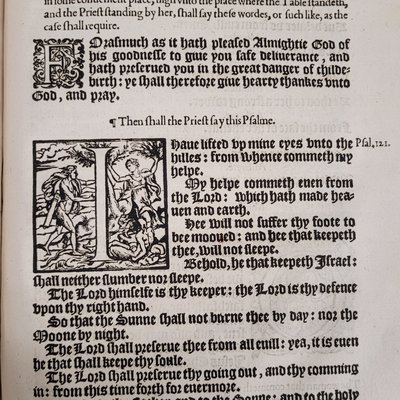 in some conuenient place, nigh vnto the place where the Table standeth,
and the Priest standing by her, shall say these wordes, or such like, as the
case shall require.
FOrasmuch as it hath pleased Almightie God of
his goodnesse to giue you safe deliuerance, and
hath preserued you in the great danger of childe-
birth: ye shall therefore giue hearty thankes vnto
God, and pray.
¶ Then shall the Priest say this Psalme.
I Haue lifted vp mine eyes vnto the Psal. 121.
hilles: from whence commeth my
helpe.
My helpe commeth euen from
the Lord: which hath made hea-
uen and earth.
Hee will not suffer thy foote to
bee mooued: and hee that keepeth
thee, will not sleepe.
Behold, he that keepeth Israel:
shall neither slumber nor sleepe.
The Lord himselfe is thy keeper: the Lord is thy defence
vpon thy right hand.
So that the Sunne shall not burne thee by day: nor the
Moone by night.
The Lord shall preserue thee from all euill: yea, it is euen
he that shall keepe thy soule.
The Lord shall preserue thy going out, and thy comming
in: from this time forth for euermore.
Glory be to the Father, and to the Sonne: and to the holy